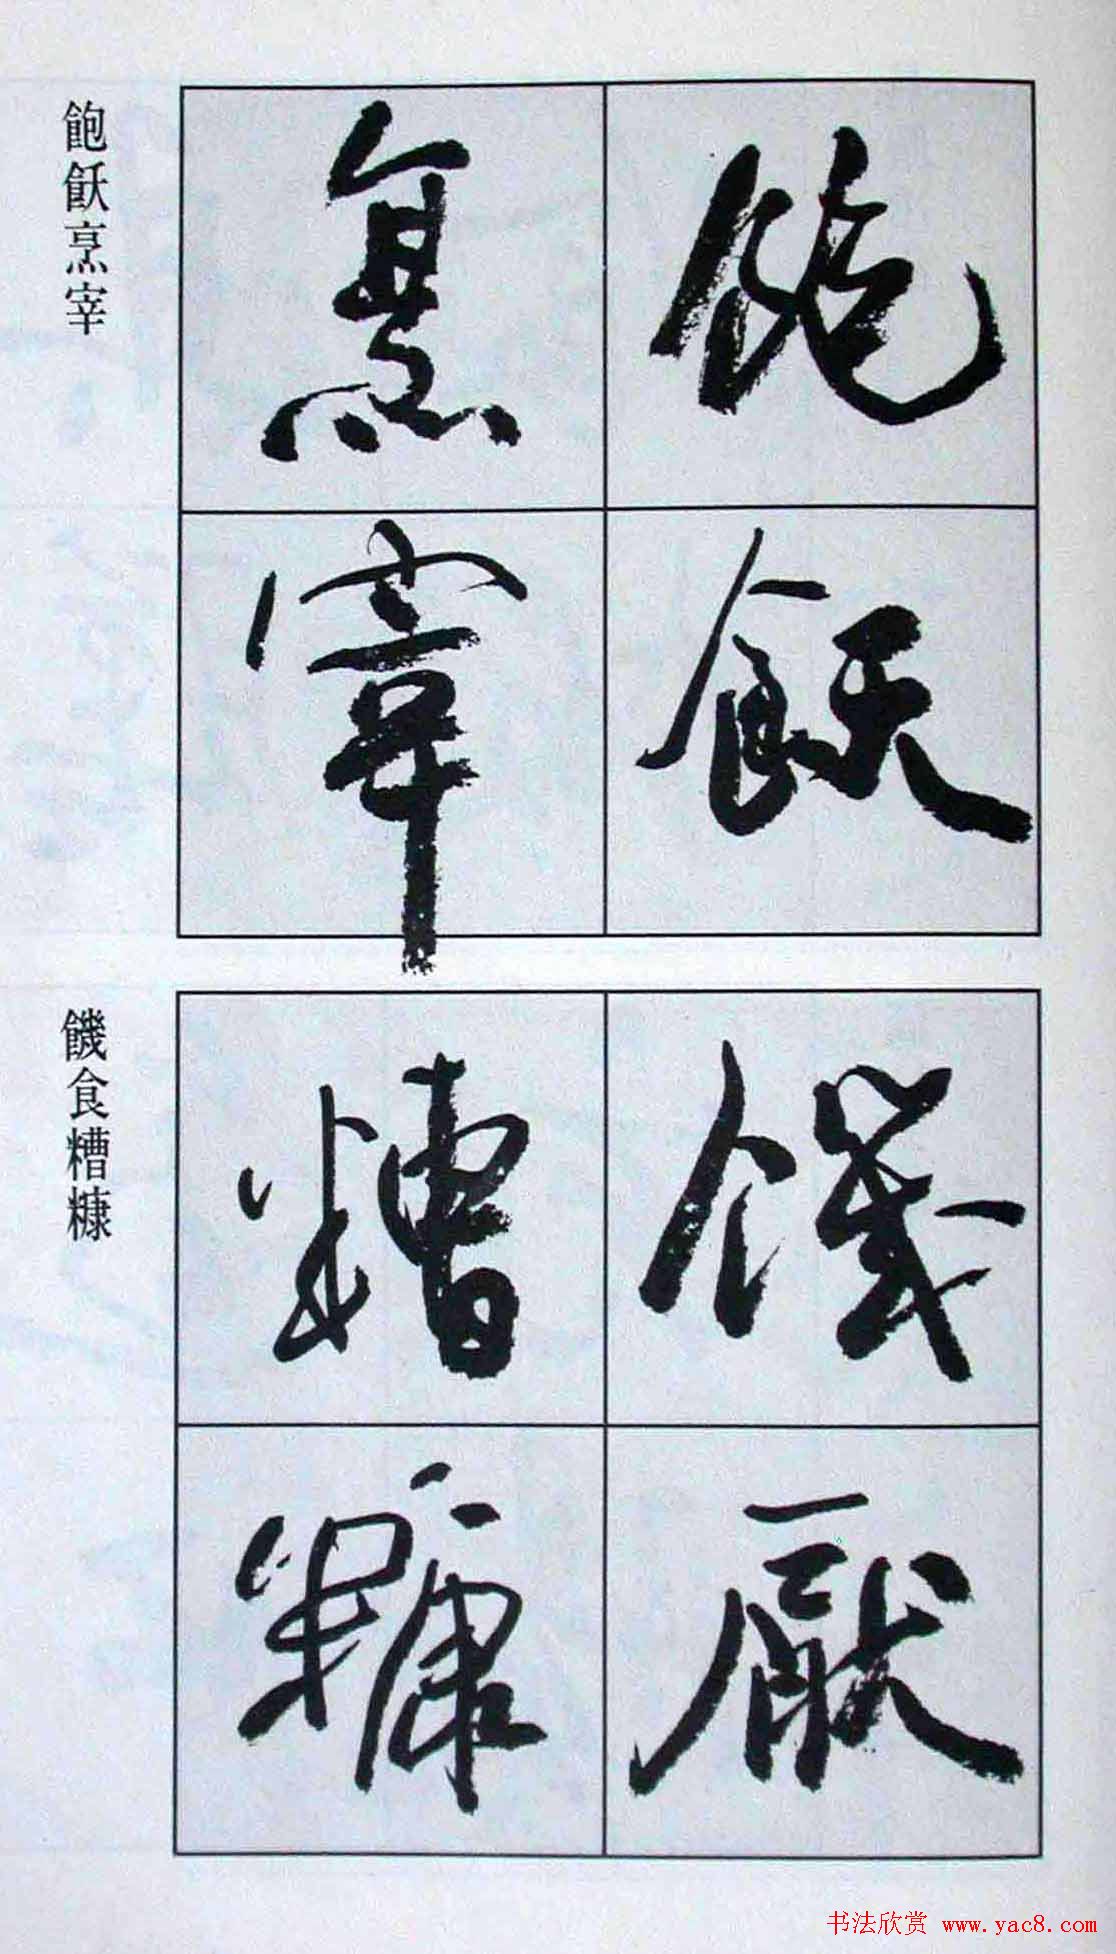 飽飫烹宰
飽飫
烹宰
饑食糟糠
饑厭
糟糠
书法欣赏 www.yac8.com